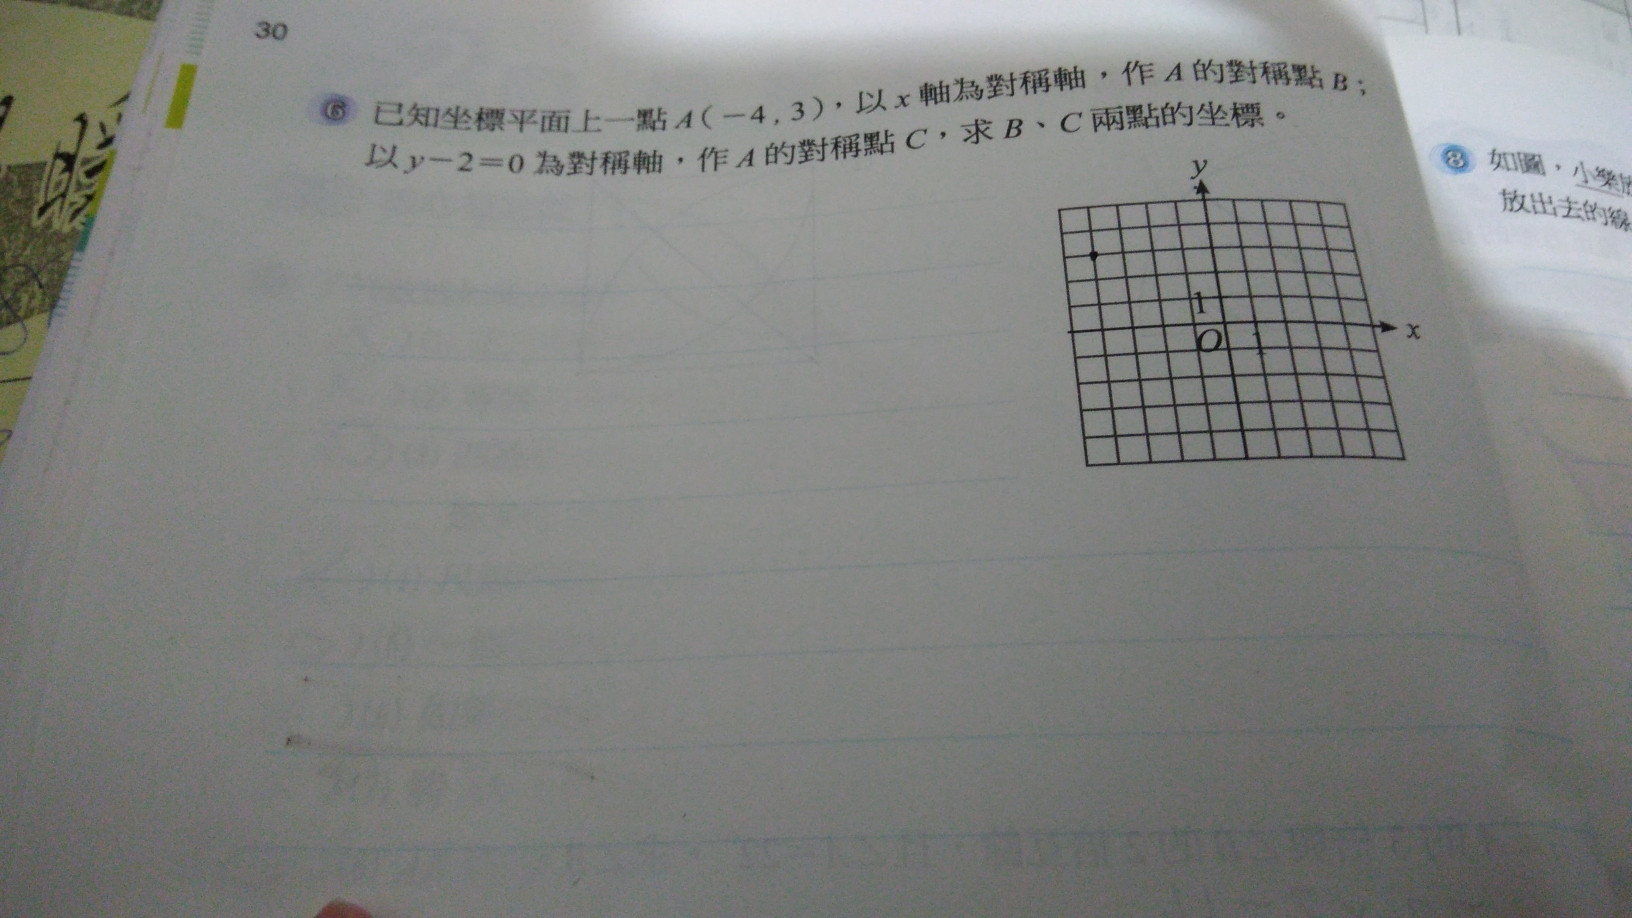 30
6 已知坐標平面上一點 A(-4,3),以 x 軸為對稱軸,作 A 的對稱點 B;
以 y-2=0 為對稱軸,作 A 的對稱點 C,求 B、C 兩點的坐標。
y
1
O 1
x
8 如圖,小樂
放出去的線